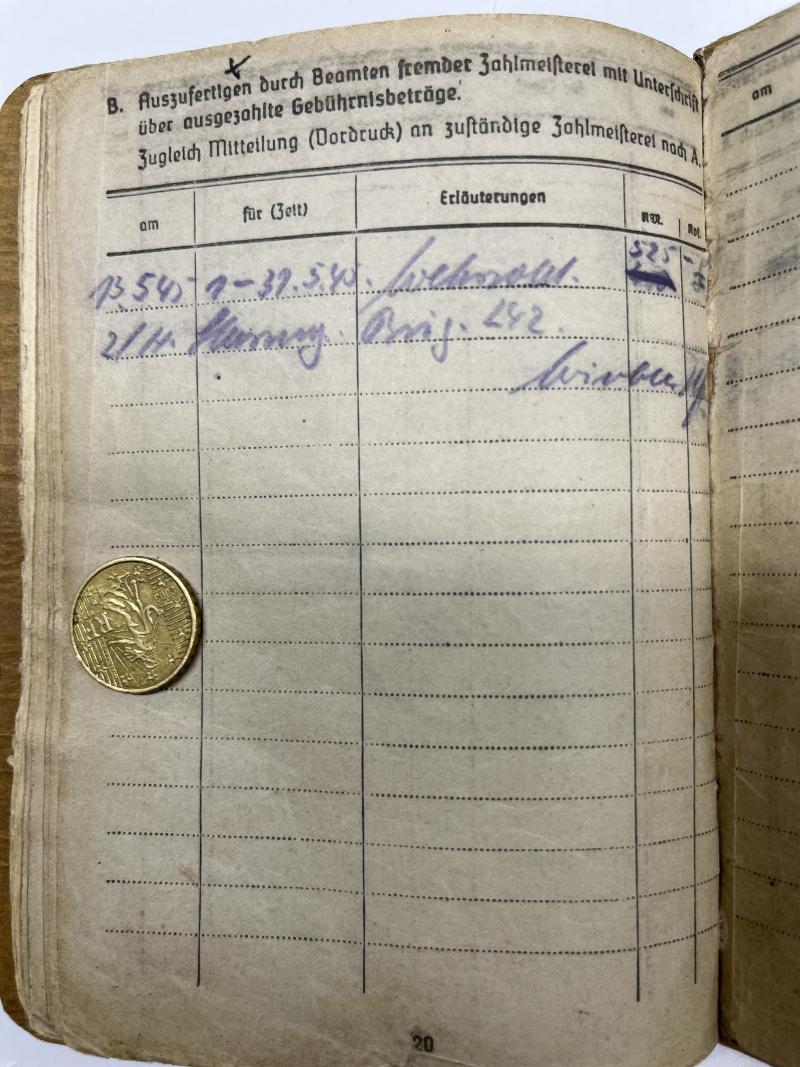 B. Auszufertigen durch Beamten fremder Zahlmeisterei mit Unterschrift
über ausgezahlte Gebührnisbeträge.
Zugleich Mitteilung (Vordruck) an zuständige Zahlmeisterei nach A.
am für (Zeit) Erläuterungen RM. Rpf.
am
13.5.45 1-31.5.45. Wehrsold. 525 -
Brig. 242.
20